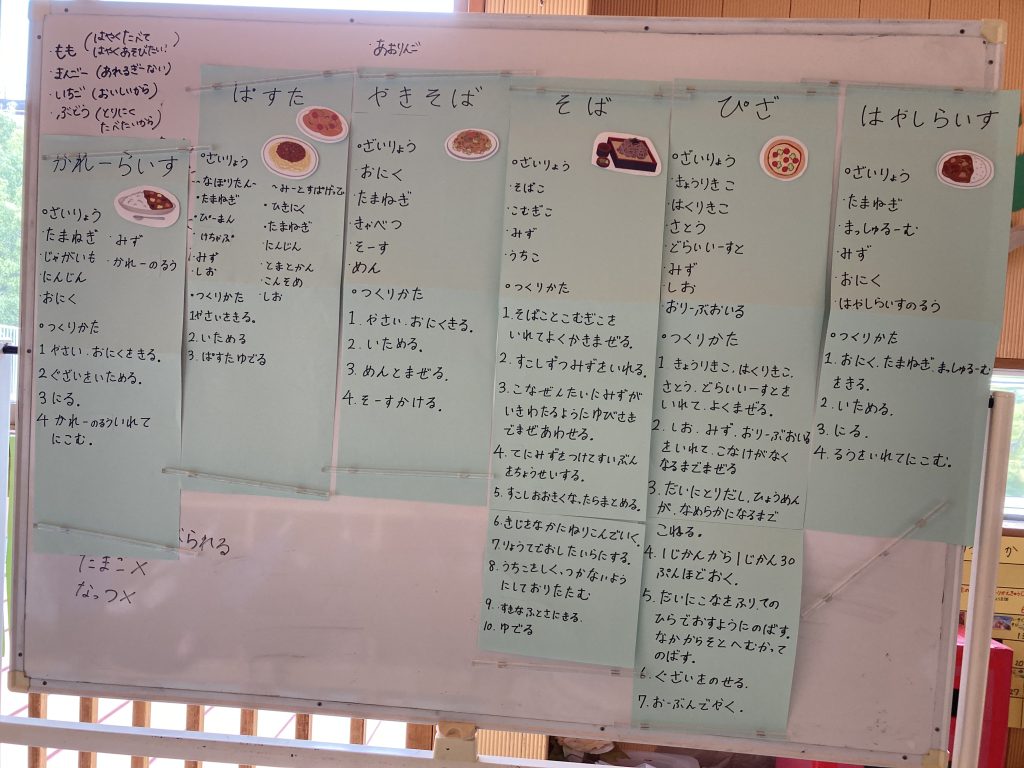 ・もも (はやくたべて
はやくあそびたい!)
・まんごー (あれるぎーない)
・いちご (おいしいから)
・ぶどう (とりにく
たべたいから)
・あおりんご
かれーらいす
○ざいりょう
・たまねぎ ・みず
・じゃがいも ・かれーのるう
・にんじん
・おにく
○つくりかた
1 やさい、おにくをきる。
2 ぐざいをいためる。
3 にる。
4 かれーのるういれて
にこむ。
ぱすた
○ざいりょう
~なぽりたん~
・たまねぎ
・ぴーまん
・けちゃぷ
・みず
・しお
~みーとすぱげってぃ
・ひきにく
・たまねぎ
・にんじん
・とまとかん
・こんそめ
・しお
○つくりかた
1やさいをきる。
2.いためる
3.ぱすたゆでる
やきそば
○ざいりょう
・おにく
・たまねぎ
・きゃべつ
・そーす
・めん
○つくりかた
1.やさい、おにくきる。
2.いためる。
3.めんとまぜる。
4.そーすかける。
そば
○ざいりょう
・そばこ
・こむぎこ
・みず
・うちこ
○つくりかた
1.そばことこむぎこを
いれてよくかきまぜる。
2.すこしずつみずをいれる。
3.こなぜんたいにみずが
いきわたるようにゆびさき
でまぜあわせる。
4.てにみずをつけてすいぶん
をちょうせいする。
5.すこしおおきくなったらまとめる。
6.きじをなかにねりこんでいく。
7.りょうてでおしたいらにする。
8.うちこをしく、つかないよう
にしておりたたむ
9.すきなふとさにきる.
10.ゆでる
ぴざ
○ざいりょう
・きょうりきこ
・はくりきこ
・さとう
・どらいいーすと
・みず
・しお
・おりーぶおいる
○つくりかた
1.きょうりきこ、はくりきこ、
さとう、どらいいーすとを
いれて、よくまぜる。
2.しお、みず、おりーぶおいる
をいれて、こなけがなく
なるまでまぜる
3.だいにとりだし、ひょうめん
が、なめらかになるまで
こねる。
4.1じかんから1じかん30
ぷんほどおく。
5.だいにこなをふり、ての
ひらでおすようにのばす。
なかからそとへむかって
のばす。
6.ぐざいをのせる。
7.おーぶんでやく。
はやしらいす
○ざいりょう
・たまねぎ
・まっしゅるーむ
・みず
・おにく
・はやしらいすのるう
○つくりかた
1.おにく、たまねぎ、まっしゅるーむ
をきる。
2.いためる。
3.にる。
4.るうをいれてにこむ。
られる
たまご×
なっつ×